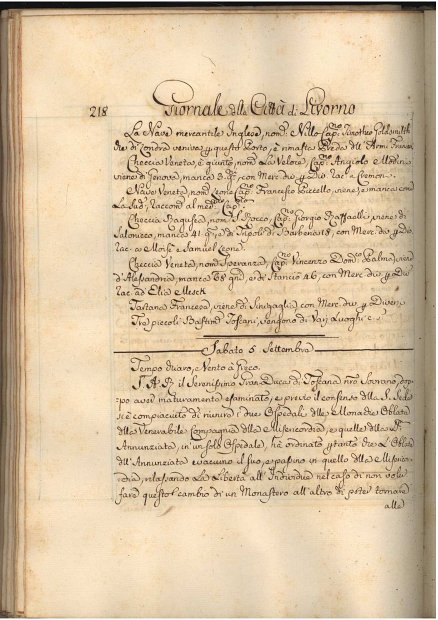 218 Giornale della Città di Livorno
La Nave mercantile Inglese, nom: Nillo Cap: Timotheo Goldsmith
che di Londra veniva p questo Porto, è rimasta Preda dell' Armi Francesi
Checcia Veneta, è giunto, nom: La Veloce, Cap: Angiolo
viene di Genova, manca 3. g:, con Merc: div: p Div: rac: a Cremon
Nave Veneta, nom: Leone, Cap: Francesco Piccello, viene, e manca come
La Sud: raccom: al med: Cap:
Checcia Ragusea, nom: S. Rocco, Cap: Giorgio Raffaelli, viene di
Salonicco, manca 41. g:, e di Tripoli di Barberia 18, con Merc: div: p Div:
rac: a Moisè e Samuel Leone.
Checcia Veneta, nom: Speranza, Cap: Vincenzo Dom: Balma, viene
d'Alessandria, manca 68 gni, e di Stancio 46, con Merc: div: p Div:
rac: ad Elia
Tartana Francese, viene di Sinigaglia, con Merc: div: p Diversi
Tre piccoli Bastim: Toscani, vengono di Varj Luoghi e
Sabato 5. Settembre
Tempo chiaro, e Vento à Greco.
S. A. R. il Serenissimo Gran Duca di Toscana nro Sovrano, dop-
po aver maturamente esaminato, e previo il consenso della S. Sede
si è compiaciuto di riunire i due Ospedali delle Monache Oblate
della Venerabile Compagnia della Misericordia, e quelle della SS.
Annunziata, in un solo Ospedale, hà ordinato p tanto che l' Oblate
dell' Annunziata evacuino il suo, e passino in quello della Misericor-
dia, rilassando La Libertà all' Individue nel caso di non volere
fare questo cambio di un Monastero all' altro di poter tornare
alle